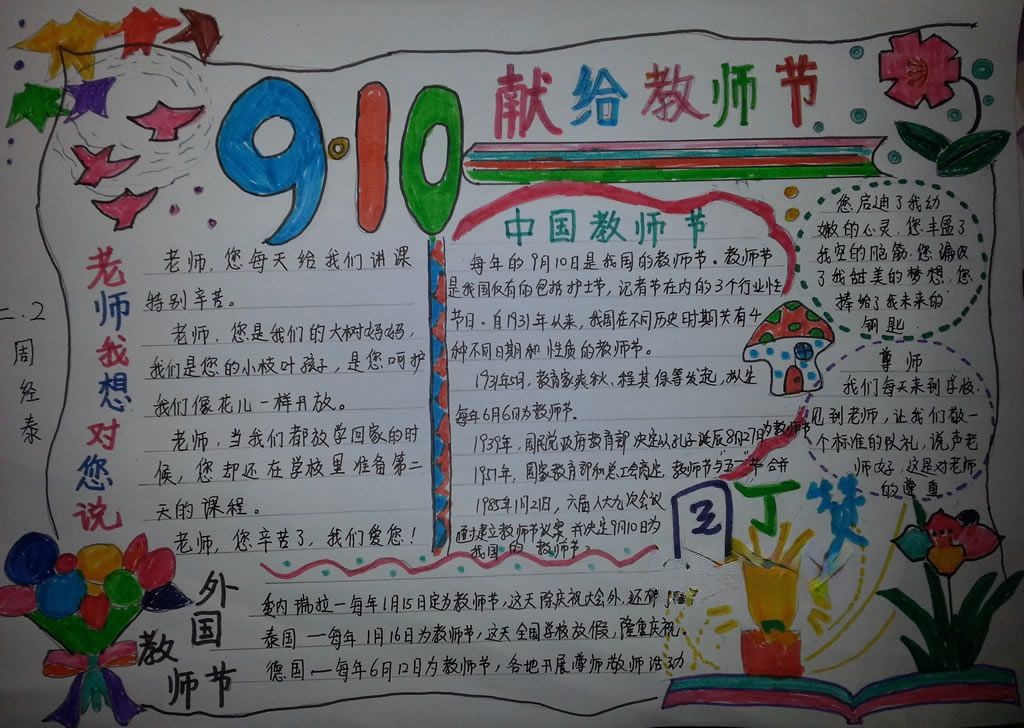 9·10
献给教师节
老师我想对您说
二.2
周经泰
老师,您每天给我们讲课
特别辛苦。
老师,您是我们的大树妈妈,
我们是您的小枝叶孩子,是您呵护
我们像花儿一样开放。
老师,当我们都放学回家的时
候,您却还在学校里准备第二
天的课程。
老师,您辛苦了,我们爱您!
中国教师节
每年的9月10日是我国的教师节。教师节
是我国仅有的包括护士节,记者节在内的3个行业性
节日。自1931年以来,我国在不同历史时期共有4
种不同日期和性质的教师节。
1931年5月,教育家爽秋、程其保等发起,
每年6月6日为教师节。
1939年,国民党政府教育部决定从孔子诞辰8月27日为教师节
1951年,国家教育部和总工会商定,教师节与五一节合并
1985年1月21日,六届人大九次会议
通过建立教师节议案,并决定9月10日为
我国的教师节。
您启迪了我幼
嫩的心灵,您丰盈了
我空的脑筋,您
了我甜美的梦想,您
捧给了我未来的
钥匙.
尊师
我们每天来到学校
见到老师,让我们敬一
个标准的队礼,说声老
师好,这是对老师
的尊重
园丁赞
外国教师节
委内瑞拉—每年1月15日定为教师节,这天除庆祝大会外,还
泰国—每年1月16日为教师节,这天全国学校放假,隆重庆祝.
德国—每年6月12日为教师节,各地开展尊师教师活动